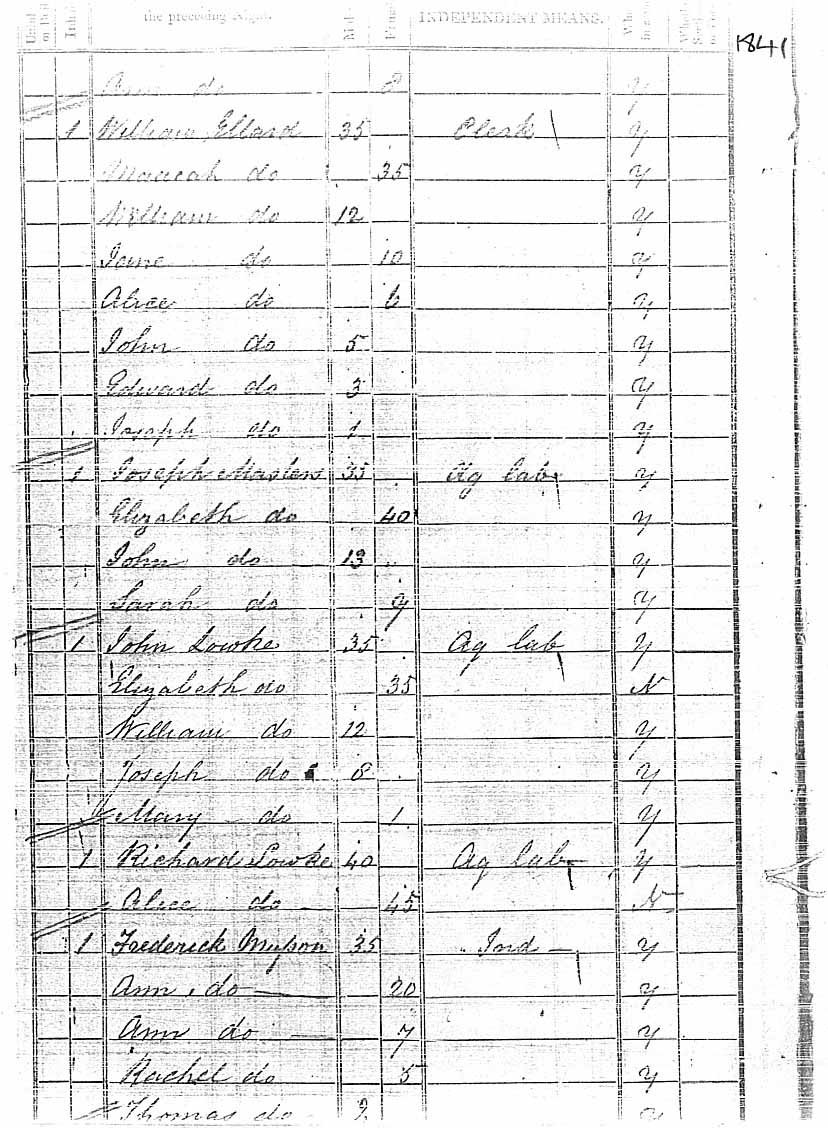 the preceding Night. INDEPENDENT MEANS.
1841
Ann do 8 y
1 William Ellard 35 Clerk y
do 35 y
William do 12 y
Jane do 10 y
Alice do 6 y
John do 5 y
Edward do 3 y
Joseph do 1 y
1 Joseph Masters 35 Ag lab y
Elizabeth do 40 y
John do 13 y
Sarah do 9 y
1 John Lowke 35 Ag lab y
Elizabeth do 35 N
William do 12 y
Joseph do 8 y
Mary do 1 y
1 Richard Lowke 40 Ag lab y
Alice do 45 N
1 Frederick 35 Ind y
Ann do 20 y
Ann do 7 y
Rachel do 5 y
Thomas do 2 y